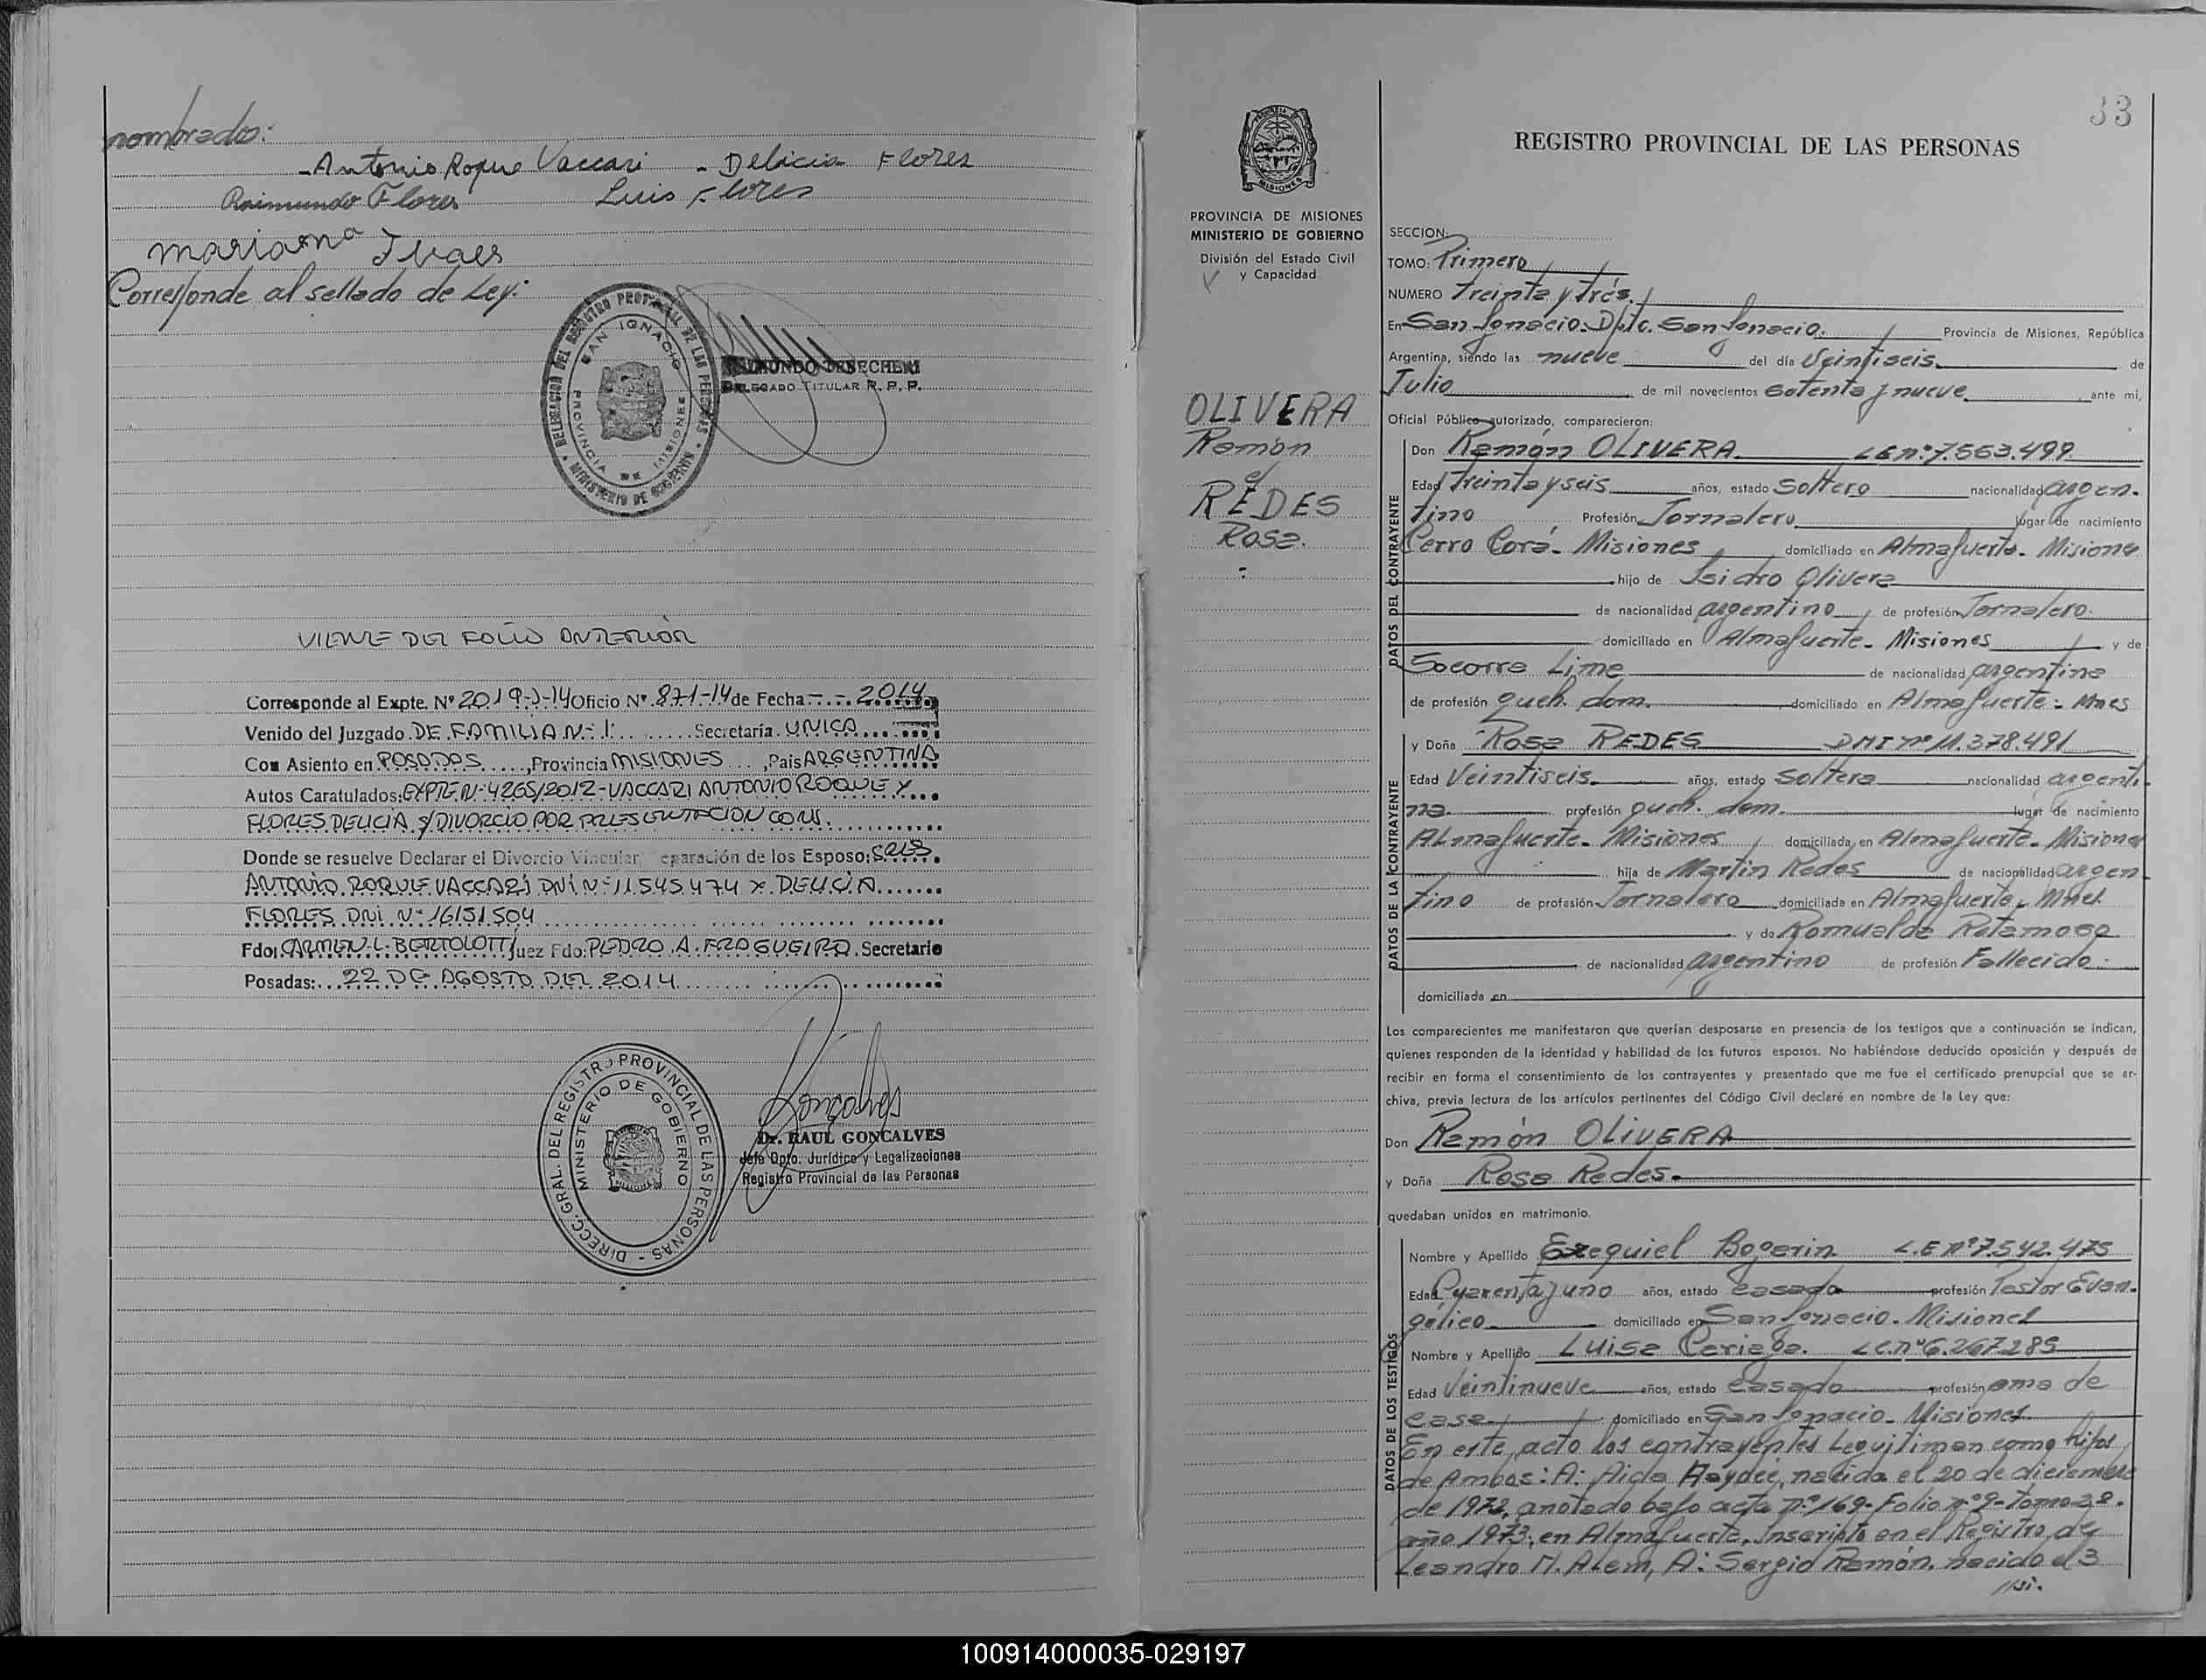 nombrados:
- Antonio Roque Vaccari - Delicia Flores
Raimundo Flores Luis Flores
Mariana
Corresponde al sellado de Ley:
DELEGACION DEL REGISTRO PROVINCIAL DE LAS PERSONAS
MINISTERIO DE GOBIERNO
SAN IGNACIO
PROVINCIA DE MISIONES
DELEGADO TITULAR R. P. P.
VIENE DEL FOLIO ANTERIOR
Corresponde al Expte. Nº 2019-J-14 Oficio Nº 871-14 de Fecha - . - 2014
Venido del Juzgado DE FAMILIA Nº 1 Secretaría UNICA
Con Asiento en POSADAS, Provincia MISIONES, Pais ARGENTINA
Autos Caratulados: EXPTE. Nº 4265/2012 - VACCARI ANTONIO ROQUE Y
FLORES DELICIA S/ DIVORCIO POR PRESENTACION CONJ.
Donde se resuelve Declarar el Divorcio Vincular, eparación de los Esposo: SRES
ANTONIO ROQUE VACCARI DNI Nº 11.545.474 Y DELICIA
FLORES DNI Nº 16151504
Fdo: CARMEN L. BERTOLOTTI Juez Fdo: PEDRO A. FRAGUEIRO Secretario
Posadas: 22 DE AGOSTO DEL 2014
DIRECC. GRAL. DEL REGISTRO PROVINCIAL DE LAS PERSONAS
MINISTERIO DE GOBIERNO
Dr. RAUL GONCALVES
Jefe Dpto. Jurídico y Legalizaciones
Registro Provincial de las Personas
33
REGISTRO PROVINCIAL DE LAS PERSONAS
MISIONES
PROVINCIA DE MISIONES
MINISTERIO DE GOBIERNO
División del Estado Civil
y Capacidad
OLIVERA
Ramón
c/
REDES
Rosa.
SECCION:
TOMO: Primero
NUMERO Treinta y trés.
En San Ignacio. Dpto. San Ignacio. Provincia de Misiones, República
Argentina, siendo las nueve del día Veintiseis de
Julio de mil novecientos setenta y nueve ante mi,
Oficial Público autorizado, comparecieron:
DATOS DEL CONTRAYENTE
Don Ramón OLIVERA L E nº 7.563.499.
Edad Treinta y seis años, estado Soltero nacionalidad argen-
tino Profesión Jornalero lugar de nacimiento
Cerro Corá - Misiones domiciliado en Almafuerte - Misiones
hijo de Isidro Olivera
de nacionalidad argentino de profesión Jornalero.
domiciliado en Almafuerte - Misiones y de
Socorra Lima de nacionalidad argentina
de profesión queh. dom. domiciliado en Almafuerte - Mnes
DATOS DE LA CONTRAYENTE
y Doña Rosa REDES DNI nº 11.378.491
Edad Veintiseis años, estado Soltera nacionalidad argenti-
na profesión queh. dom. lugar de nacimiento
Almafuerte - Misiones domiciliada en Almafuerte - Misiones
hija de Martin Redes de nacionalidad argen
tino de profesión Jornalero domiciliada en Almafuerte - Mnes.
y de Romualda Retamoso
de nacionalidad argentino de profesión Fallecida.
domiciliada en
Los comparecientes me manifestaron que querían desposarse en presencia de los testigos que a continuación se indican,
quienes responden de la identidad y habilidad de los futuros esposos. No habiéndose deducido oposición y después de
recibir en forma el consentimiento de los contrayentes y presentado que me fue el certificado prenupcial que se ar-
chiva, previa lectura de los artículos pertinentes del Código Civil declaré en nombre de la Ley que:
Don Ramón OLIVERA
y Doña Rosa Redes.
quedaban unidos en matrimonio.
DATOS DE LOS TESTIGOS
Nombre y Apellido Ezequiel Bogarin L.E nº 7.542.475
Edad Cuarenta y uno años, estado casado profesión Pastor Evan-
gélico domiciliado en San Ignacio - Misiones
Nombre y Apellido Luisa L.C. nº 6.267.285
Edad Veintinueve años, estado casada profesión ama de
casa domiciliado en San Ignacio - Misiones.
En este acto los contrayentes Leguitiman como hijos
de Ambos: A: Aida Haydeé, nacida el 20 de diciembre
de 1972, anotado bajo acta nº 169 - Folio nº 9 - tomo 2º.
año 1973, en Almafuerte, Inscripto en el Registro de
Leandro N. Alem, A: Sergio Ramón, nacido el 3
100914000035-029197